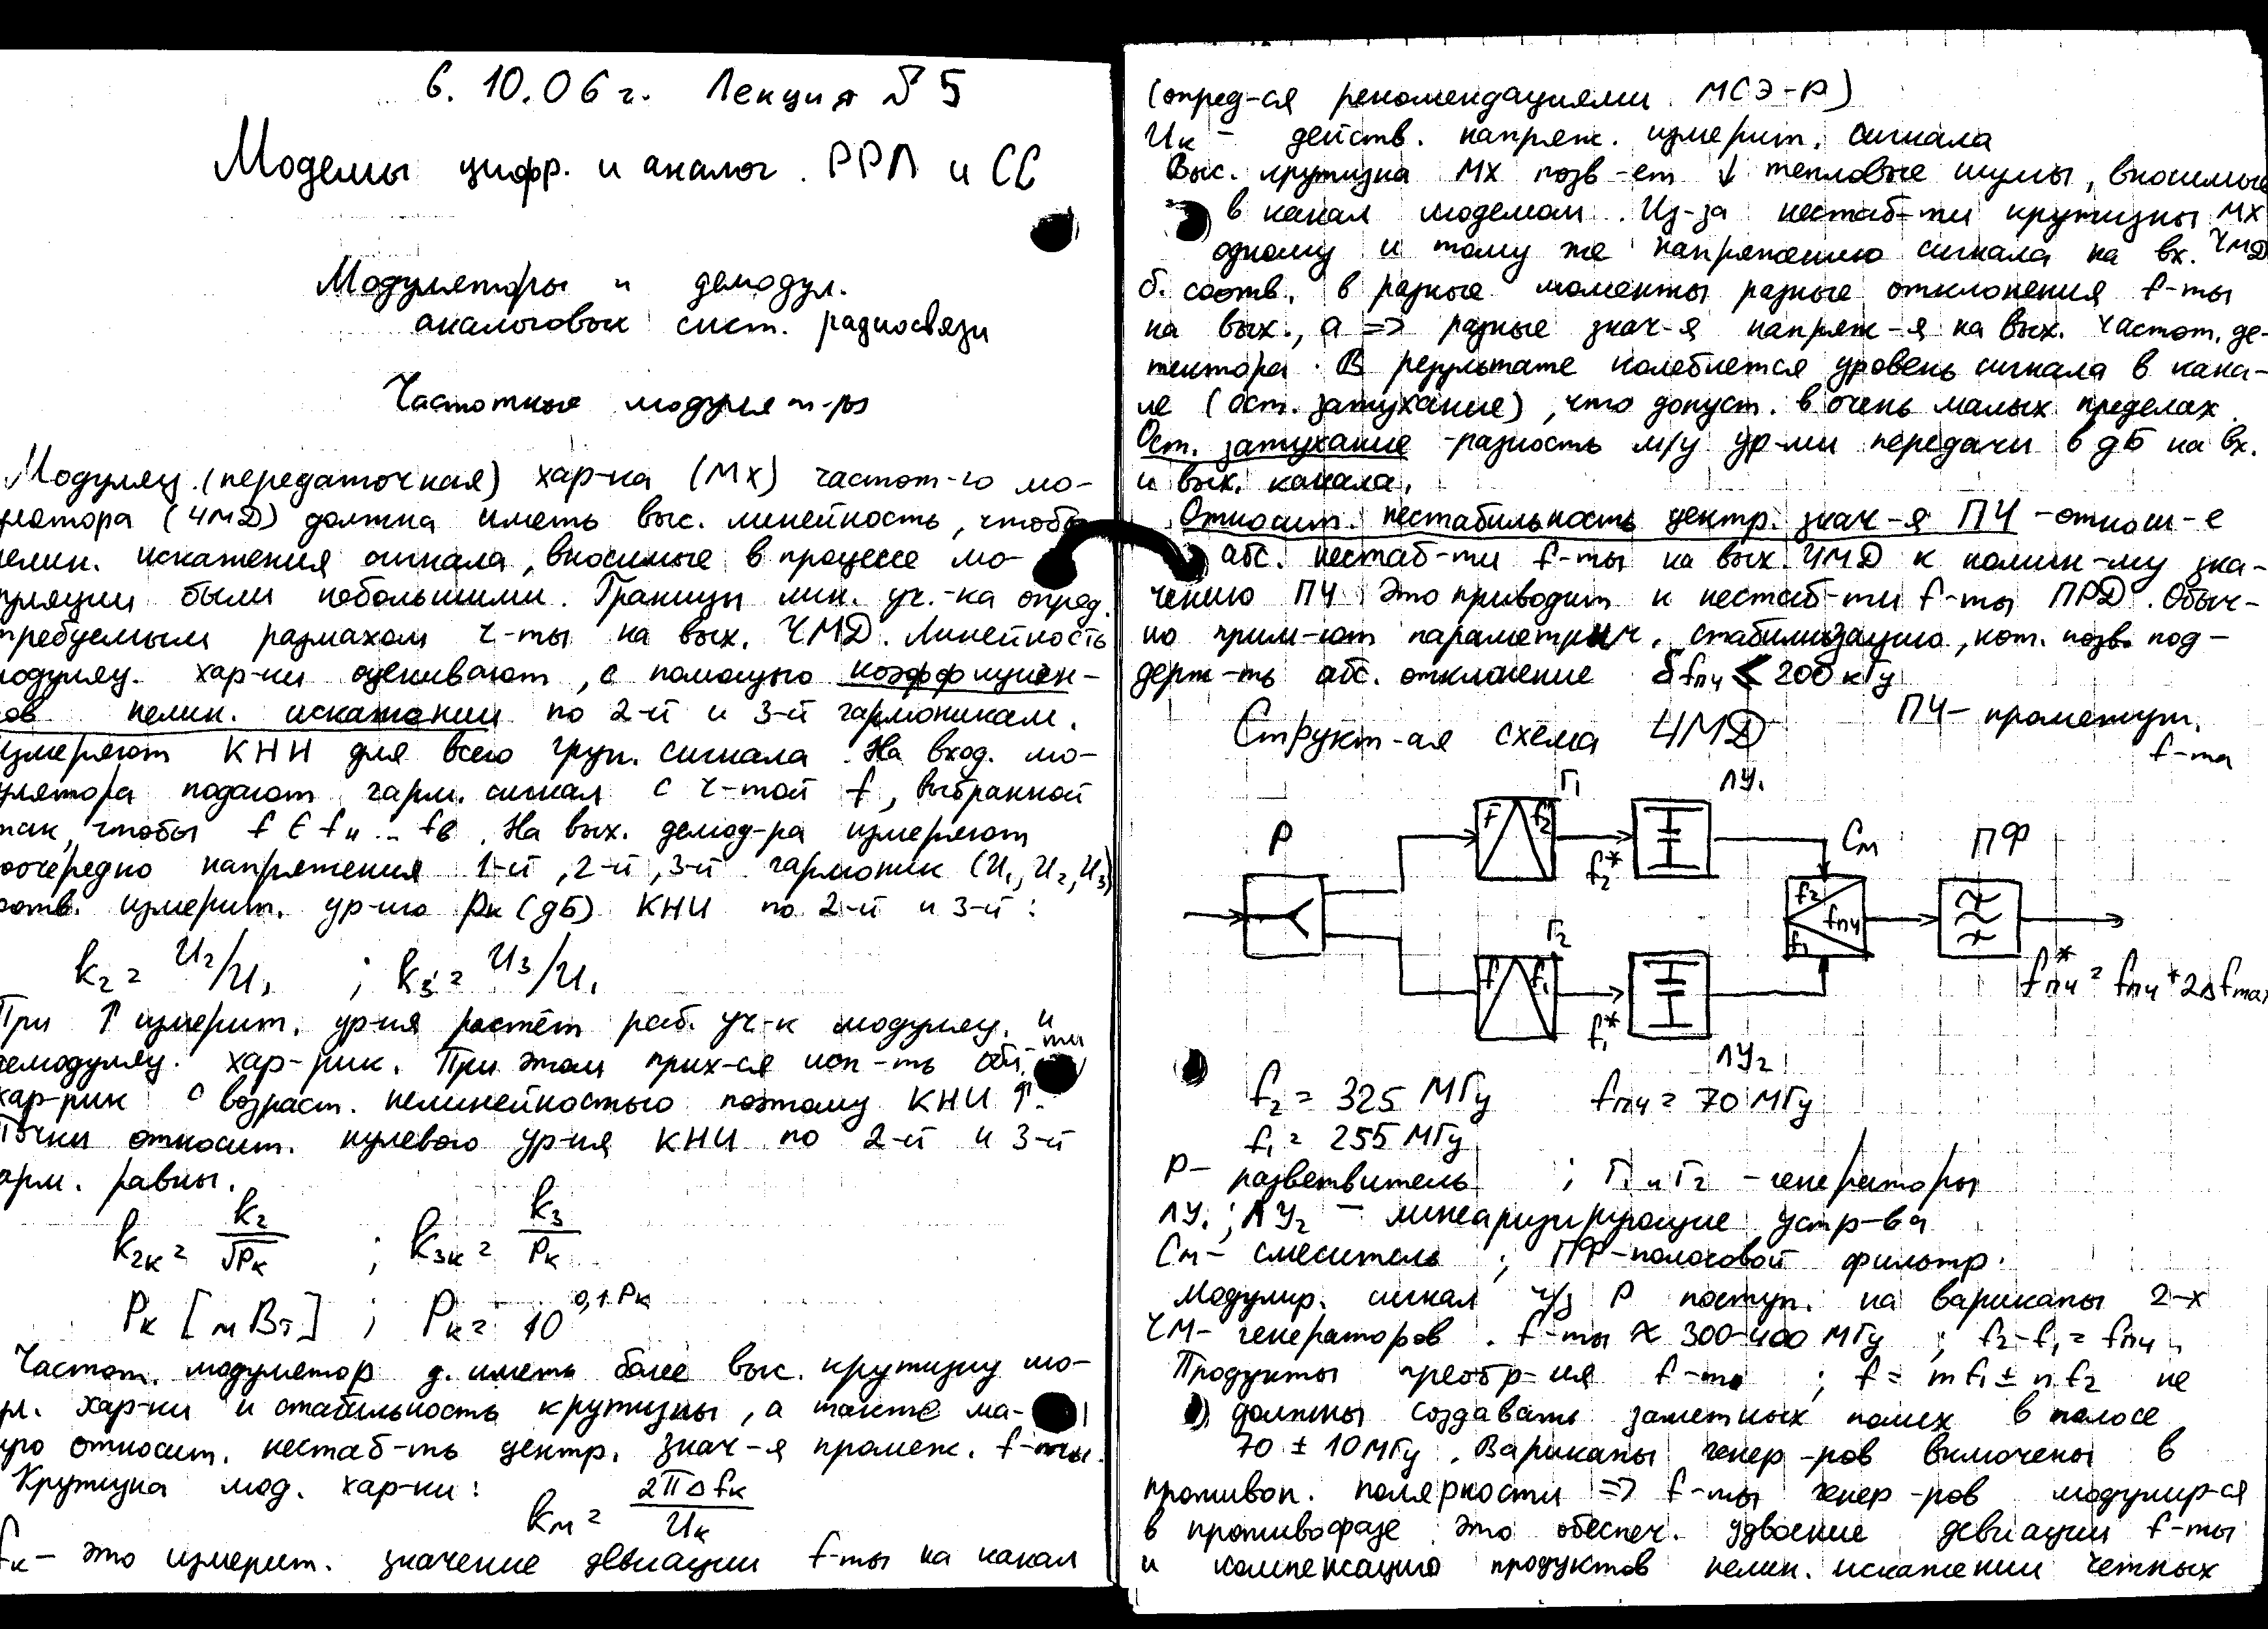 6.10.06 г. Лекция №5
Модемы цифр. и аналог. РРЛ и СС
Модуляторы и демодул.
аналоговых сист. радиосвязи
Частотные модулят-ры
Модуляц. (передаточная) хар-ка (МХ) частот-го мо-
лятора (ЧМД) должна иметь выс. линейность, чтобы
елин. искажения сигнала, вносимые в процессе мо-
уляции были небольшими. Границы лин. уч.-ка опред.
требуемым размахом ч-ты на вых. ЧМД. Линейность
модуляц. хар-ки оценивают, с помощью коэффициен-
ов нелин. искажений по 2-й и 3-й гармоникам.
измеряют КНИ для всего груп. сигнала. На вход. мо-
улятора подают гарм. сигнал с ч-той f, выбранной
так, чтобы f ∈ fн .. fв. На вых. демод-ра измеряют
поочередно напряжения 1-й, 2-й, 3-й гармоник (U₁, U₂, U₃)
оотв. измерит. ур-ню Pк (дБ) КНИ по 2-й и 3-й:
k₂ = U₂/U₁ ; k₃ = U₃/U₁
При ↑ измерит. ур-ня растёт раб. уч-к модуляц. и
демодуляц. хар-рик. При этом прих-ся исп-ть обл-ти
хар-рик с возраст. нелинейностью поэтому КНИ ↑.
Точки относит. нулевого ур-ня КНИ по 2-й и 3-й
арм. равны.
k₂к = k₂/√Pк ; k₃к = k₃/Pк
Pк [мВт] ; Pк = 10^0,1·Pк
Частот. модулятор д. иметь более выс. крутизну мо-
ул. хар-ки и стабильность крутизны, а также ма-
ую относит. нестаб-ть центр. знач-я промеж. f-ты.
Крутизна мод. хар-ки:
kм = 2πΔfк/Uк
fк – это измерит. значение девиации f-ты на канал
(опред-ся рекомендациями МСЭ-Р)
Uк – действ. напряж. измерит. сигнала
Выс. крутизна МХ позв-ет ↓ тепловые шумы, вносимые
в канал модемом. Из-за нестаб-ти крутизны МХ
одному и тому же напряжению сигнала на вх. ЧМД
б. соотв. в разные моменты разные отклонения f-ты
на вых., а => разные знач-я напряж-я на вых. частот. де-
тектора. В результате колеблется уровень сигнала в кана-
ле (ост. затухание), что допуст. в очень малых пределах.
Ост. затухание - разность м/у ур-ми передачи в дБ на вх.
и вых. канала.
Относит. нестабильность центр. знач-я ПЧ - отнош-е
абс. нестаб-ти f-ты на вых. ЧМД к номин-му зна-
чению ПЧ. Это приводит к нестаб-ти f-ты ПРД. Обыч-
но прим-ют параметрич. стабилизацию, кот. позв. под-
держ-ть абс. отклонение δfпч ≤ 200 кГц
ПЧ – промежут.
f-та
Структ-ая схема ЧМД
Г₁ ЛУ₁
Р f f₂ f₂* См ПФ
f₂ fпч f₁
Г₂
f f₁ f₁* fпч* = fпч + 2Δfmax
ЛУ₂
f₂ = 325 МГц fпч = 70 МГц
f₁ = 255 МГц
Р – разветвитель ; Г₁ и Г₂ – генераторы
ЛУ₁ ; ЛУ₂ – линеаризирующие устр-ва
См – смеситель ; ПФ – полосовой фильтр.
Модулир. сигнал ч/з Р поступ. на варикапы 2-х
ЧМ – генераторов. f-ты ≈ 300-400 МГц ; f₂-f₁ = fпч.
Продукты преобр-ия f-ты ; f = mf₁ ± nf₂ не
должны создавать заметных помех в полосе
70 ± 10 МГц. Варикапы генер-ров включены в
противоп. полярности => f-ты генер-ров модулир-ся
в противофазе. Это обеспеч. удвоение девиации f-ты
и компенсацию продуктов нелин. искажений четных